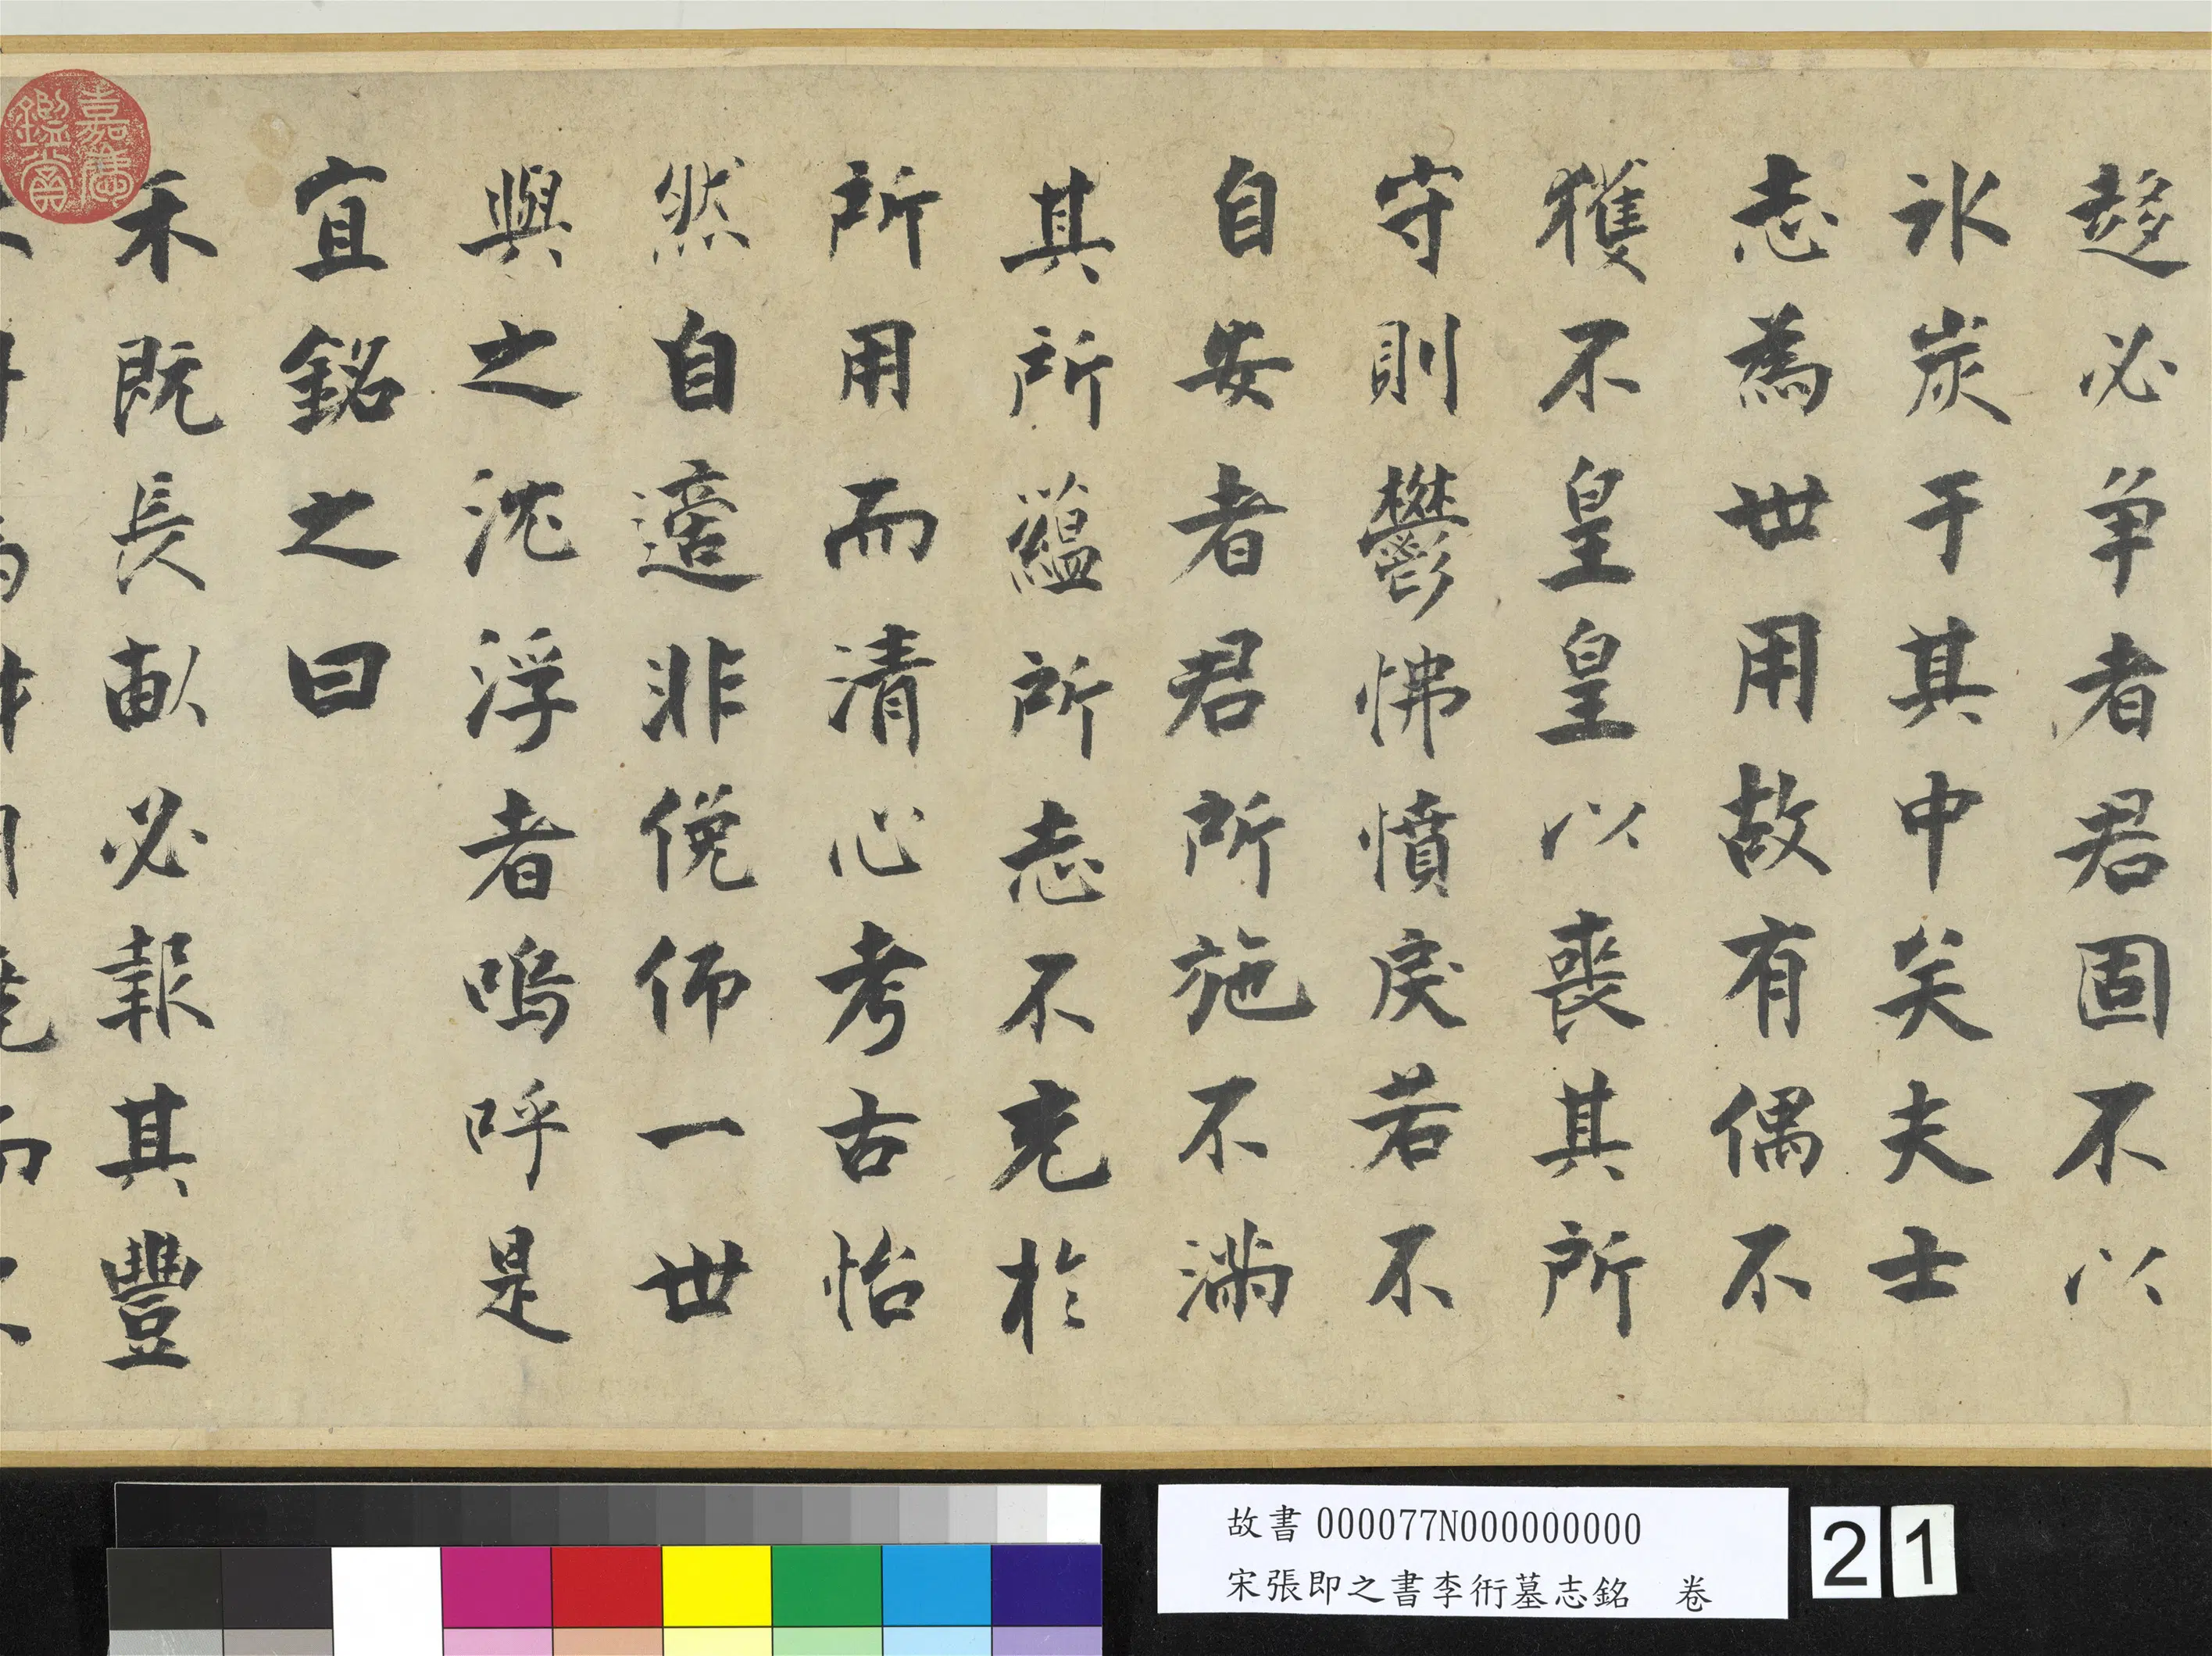 趍必爭者君固不以
氷炭于其中矣夫士
志為世用故有偶不
獲不皇皇以喪其所
守則鬱怫憤戾若不
自安者君所施不滿
其所蘊所志不充於
所用而清心考古怡
然自適非俛仰一世
與之沈浮者嗚呼是
宜銘之曰
禾既長畝必報其豐
嘉慶鑑賞
故書 000077N000000000
宋張即之書李衎墓志銘 卷
21